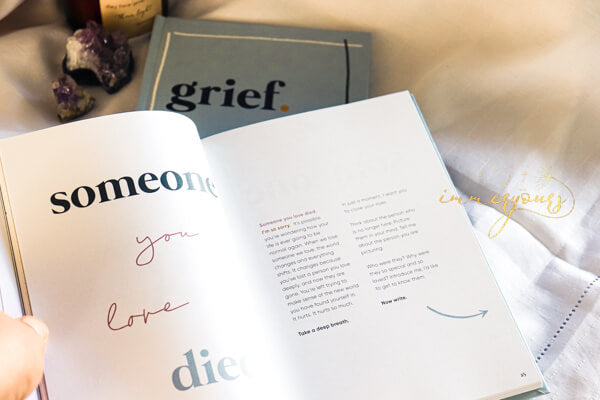 grief.
someone
you
love
died
Someone you love died.
I'm so sorry. It's possible
you're wondering how your
life is ever going to be
normal again. When we lose
someone we love, the world
changes and everything
shifts. It changes because
you've lost a person you love
deeply, and now they are
gone. You're left trying to
make sense of the new world
you have found yourself in.
It hurts. It hurts so much.
Take a deep breath.
In just a moment, I want you
to close your eyes.
Think about the person who
is no longer here. Picture
them in your mind. Tell me
about the person you are
picturing.
Who were they? Why were
they so special and so
loved? Introduce me, I'd like
to get to know them.
Now write.